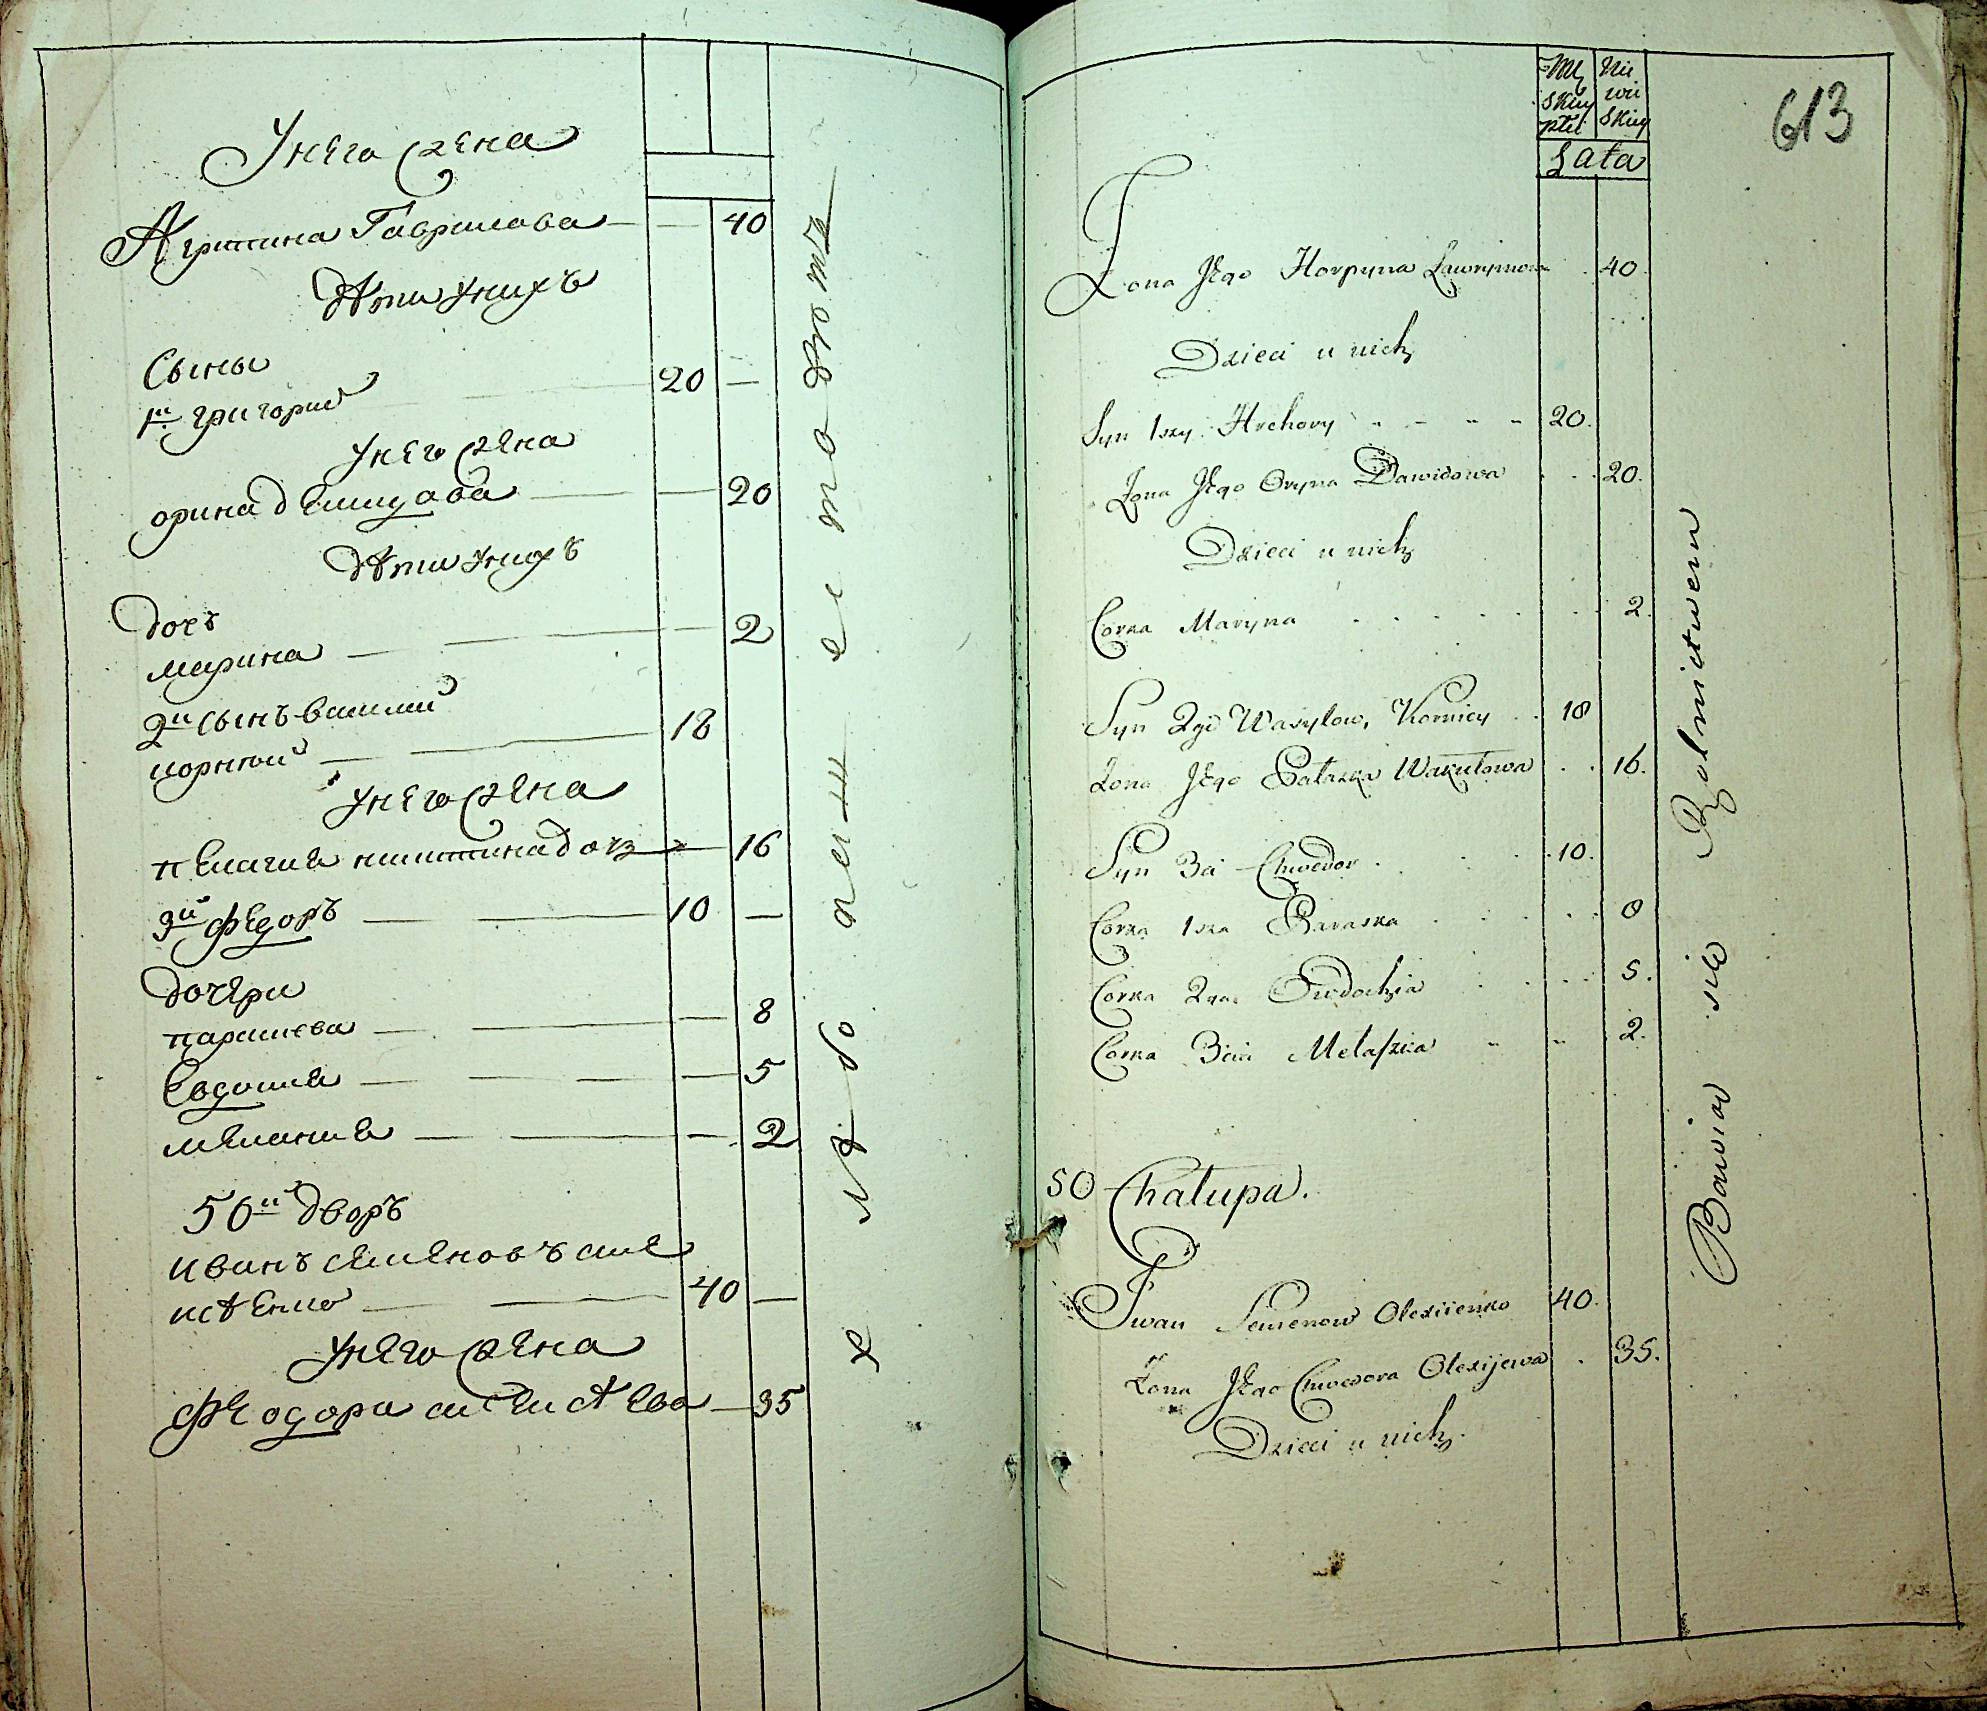 У него жена
Агрипина Гаврилова — — 40
Дети у них ъ
Сыны
1й григорий 20 —
У него жена
орина демидова — — 20
Дети у них ъ
дочъ
марина — — 2
2й сынъ василий
корнюй — 18
У него жена
пелагия никитина дочь — 16
3й федоръ — 10 —
дочери
параскева — — 8
Евдокия — — 5
мелания — — 2
50й дворъ
иванъ семеновъ оле
ксѣенко — 40 —
У него жена
феодора алексѣева — 35
хлебопашеством
613
Męskiey płci
Niewieskiey
Lata
Żona Jego Horpyna Ławrynowa 40
Dzieci u nich
Syn 1szy Hrehory 20.
Żona Jego Oryna Dawidowa 20.
Dzieci u nich
Corka Maryna 2.
Syn 2gi Wasylow, Kornicy 18
Żona Jego Pałazka Wakułowa 16.
Syn 3ci Chwedor 10.
Corka 1sza Paraska 8
Corka 2ga Owdochia 5.
Corka 3cia Melaszka 2.
50 Chałupa.
Iwan Semenow Olexiienko 40.
Żona Jego Chwedora Olexijewa 35.
Dzieci u nich.
Bawią się Rolnictwem